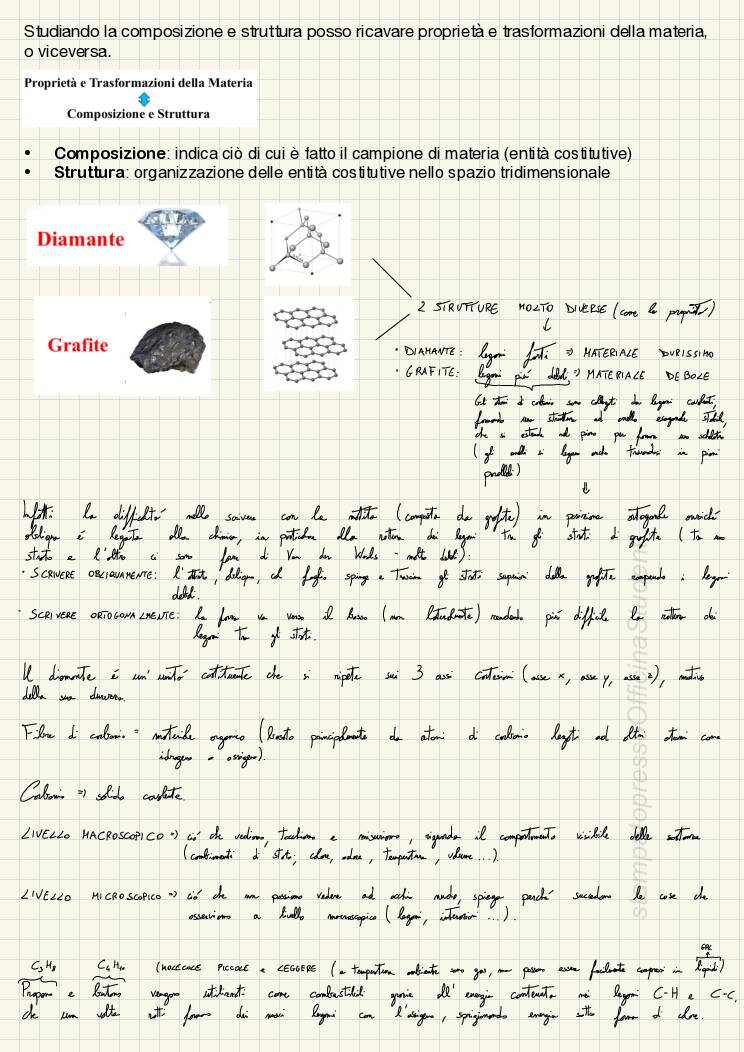 Studiando la composizione e struttura posso ricavare proprietà e trasformazioni della materia,
o viceversa.
Proprietà e Trasformazioni della Materia
Composizione e Struttura
• Composizione: indica ciò di cui è fatto il campione di materia (entità costitutive)
• Struttura: organizzazione delle entità costitutive nello spazio tridimensionale
Diamante
Grafite
2 STRUTTURE MOLTO DIVERSE (come le proprietà)
↓
• DIAMANTE: legami forti => MATERIALE DURISSIMO
• GRAFITE: legami più deboli => MATERIALE DEBOLE
Gli atomi di carbonio sono collegati da legami covalenti,
formando una struttura ad anello esagonale stabile,
che si estende nel piano per formare uno scheletro
(gli anelli si legano anche trovandosi in piani
paralleli)
↓
Infatti la difficoltà nello scrivere con la matita (composta da grafite) in posizione ortogonale anziché
obliqua é legata alla chimica, in particolare alla rottura dei legami tra gli strati di grafite (tra uno
strato e l'altro ci sono forze di Van der Waals - molto deboli):
• SCRIVERE OBLIQUAMENTE: l'attrito, obliquo, col foglio spinge e trascina gli strati superiori della grafite rompendo i legami
deboli.
• SCRIVERE ORTOGONALMENTE: la forza va verso il basso (non lateralmente) rendendo più difficile la rottura dei
legami tra gli strati.
Il diamante é un'unità costituente che si ripete sui 3 assi cartesiani (asse x, asse y, asse z), motivo
della sua durezza.
Fibra di carbonio = materiale organico (basato principalmente da atomi di carbonio legati ad altri atomi come
idrogeno o ossigeno).
Carbonio => solido covalente.
LIVELLO MACROSCOPICO => ciò che vediamo, tocchiamo e misuriamo, riguarda il comportamento visibile delle sostanze
(cambiamenti di stato, colore, odore, temperatura, volume ...).
LIVELLO MICROSCOPICO => ciò che non possiamo vedere ad occhio nudo, spiega perché succedono le cose che
osserviamo a livello macroscopico (legami, interazioni ...).
GPL
C3H8 C4H10 (MOLECOLE PICCOLE e LEGGERE (a temperatura ambiente sono gas, ma possono essere facilmente compressi in liquidi)
Propano e butano vengono utilizzati come combustibili grazie all'energia contenuta nei legami C-H e C-C,
che una volta rotti formano dei nuovi legami con l'ossigeno, sprigionando energia sotto forma di calore.
stampatopressoOfficinaStudenti